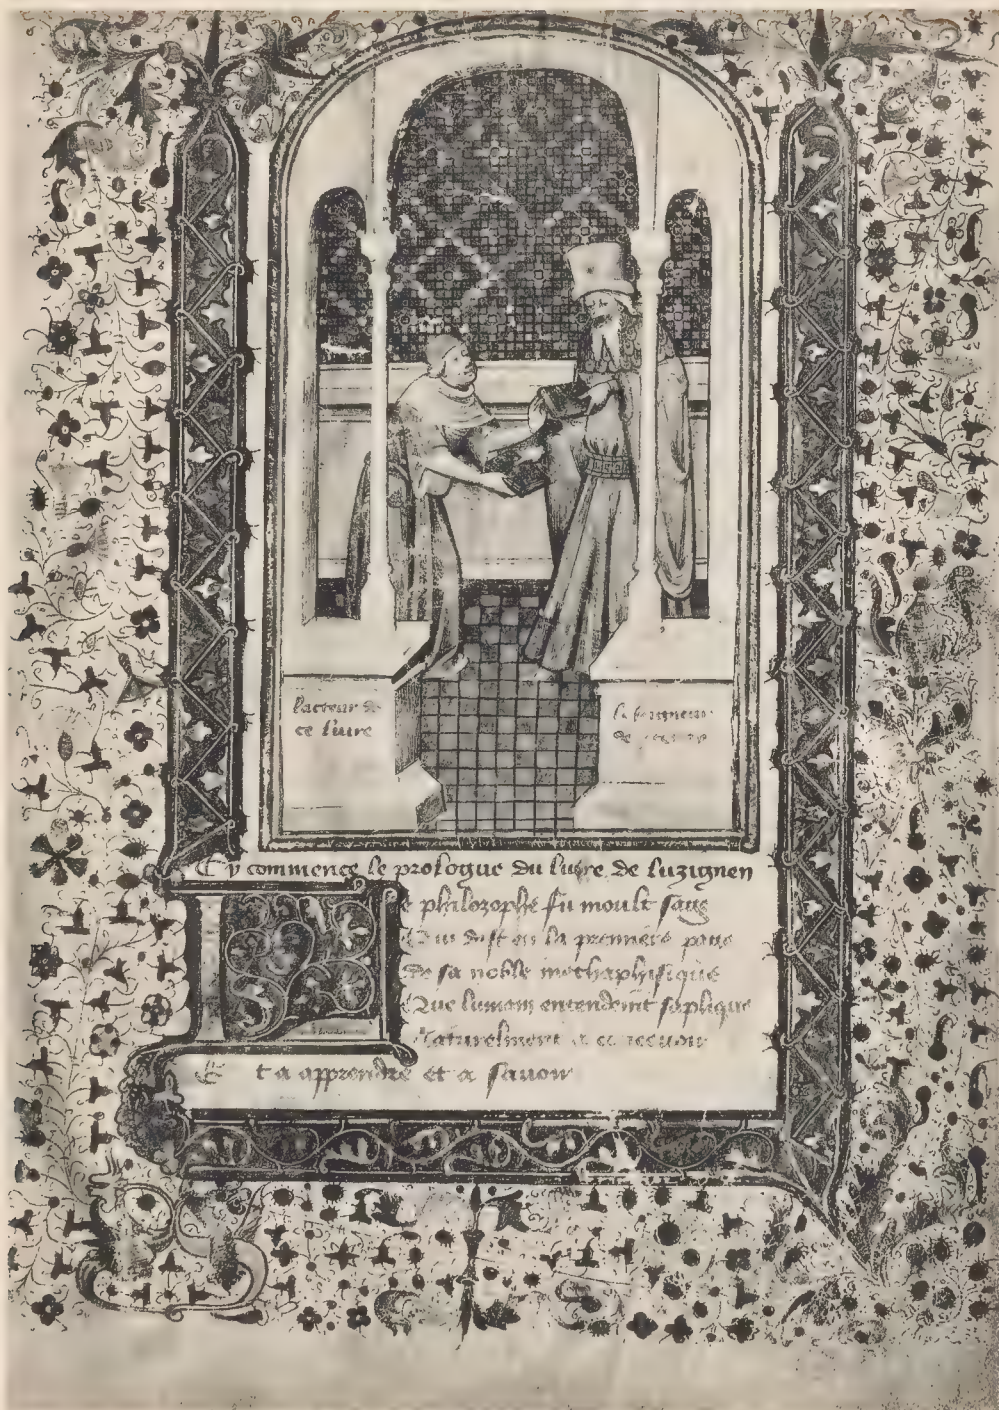 lacteur de
ce liure
le seigneur
de
Cy commence le prologue du liure de luzignen
e philozophe fu moult saige
Qui dist en la premiere page
de sa noble methaphisique
Que lumain entendemt saplique
Naturelment a
Et a apprendre et a sauoir